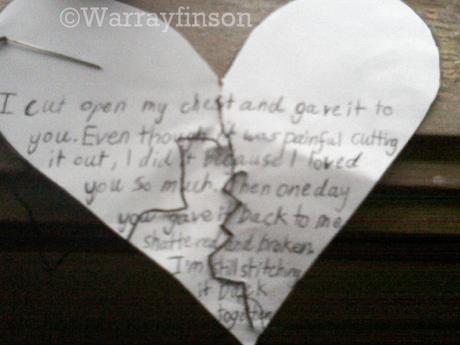 ©Warrayfinson
I cut open my chest and gave it to
you. Even though it was painful cutting
it out, I did it because I loved
you so much. Then one day
you gave it back to me
shattered and broken.
I'm still stitching
it back
together